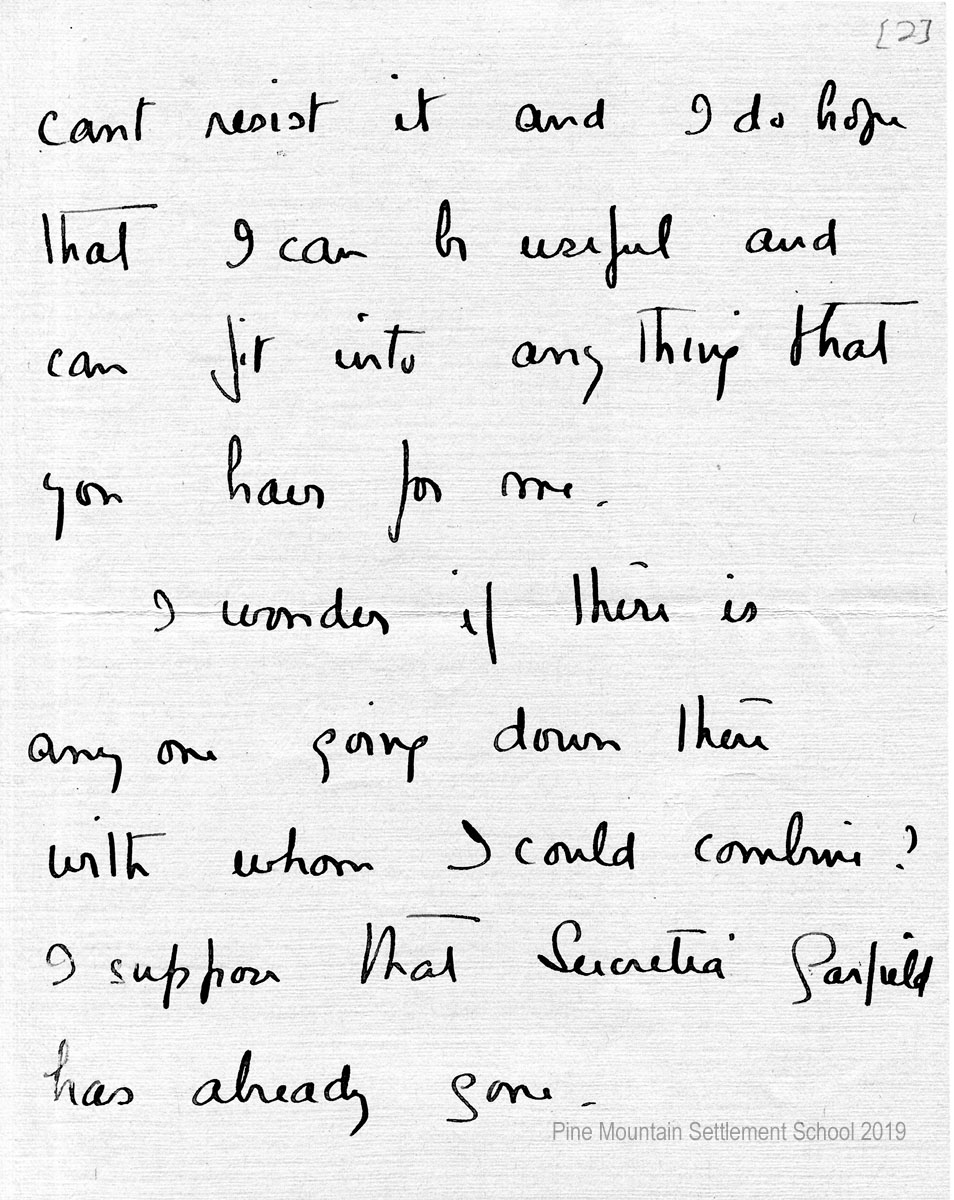 [2]
cant resist it and I do hope
that I can be useful and
can fit into any thing that
you have for me.
I wonder if there is
any one going down there
with whom I could combine?
I suppose that Lucretia Garfield
has already gone.
Pine Mountain Settlement School 2019